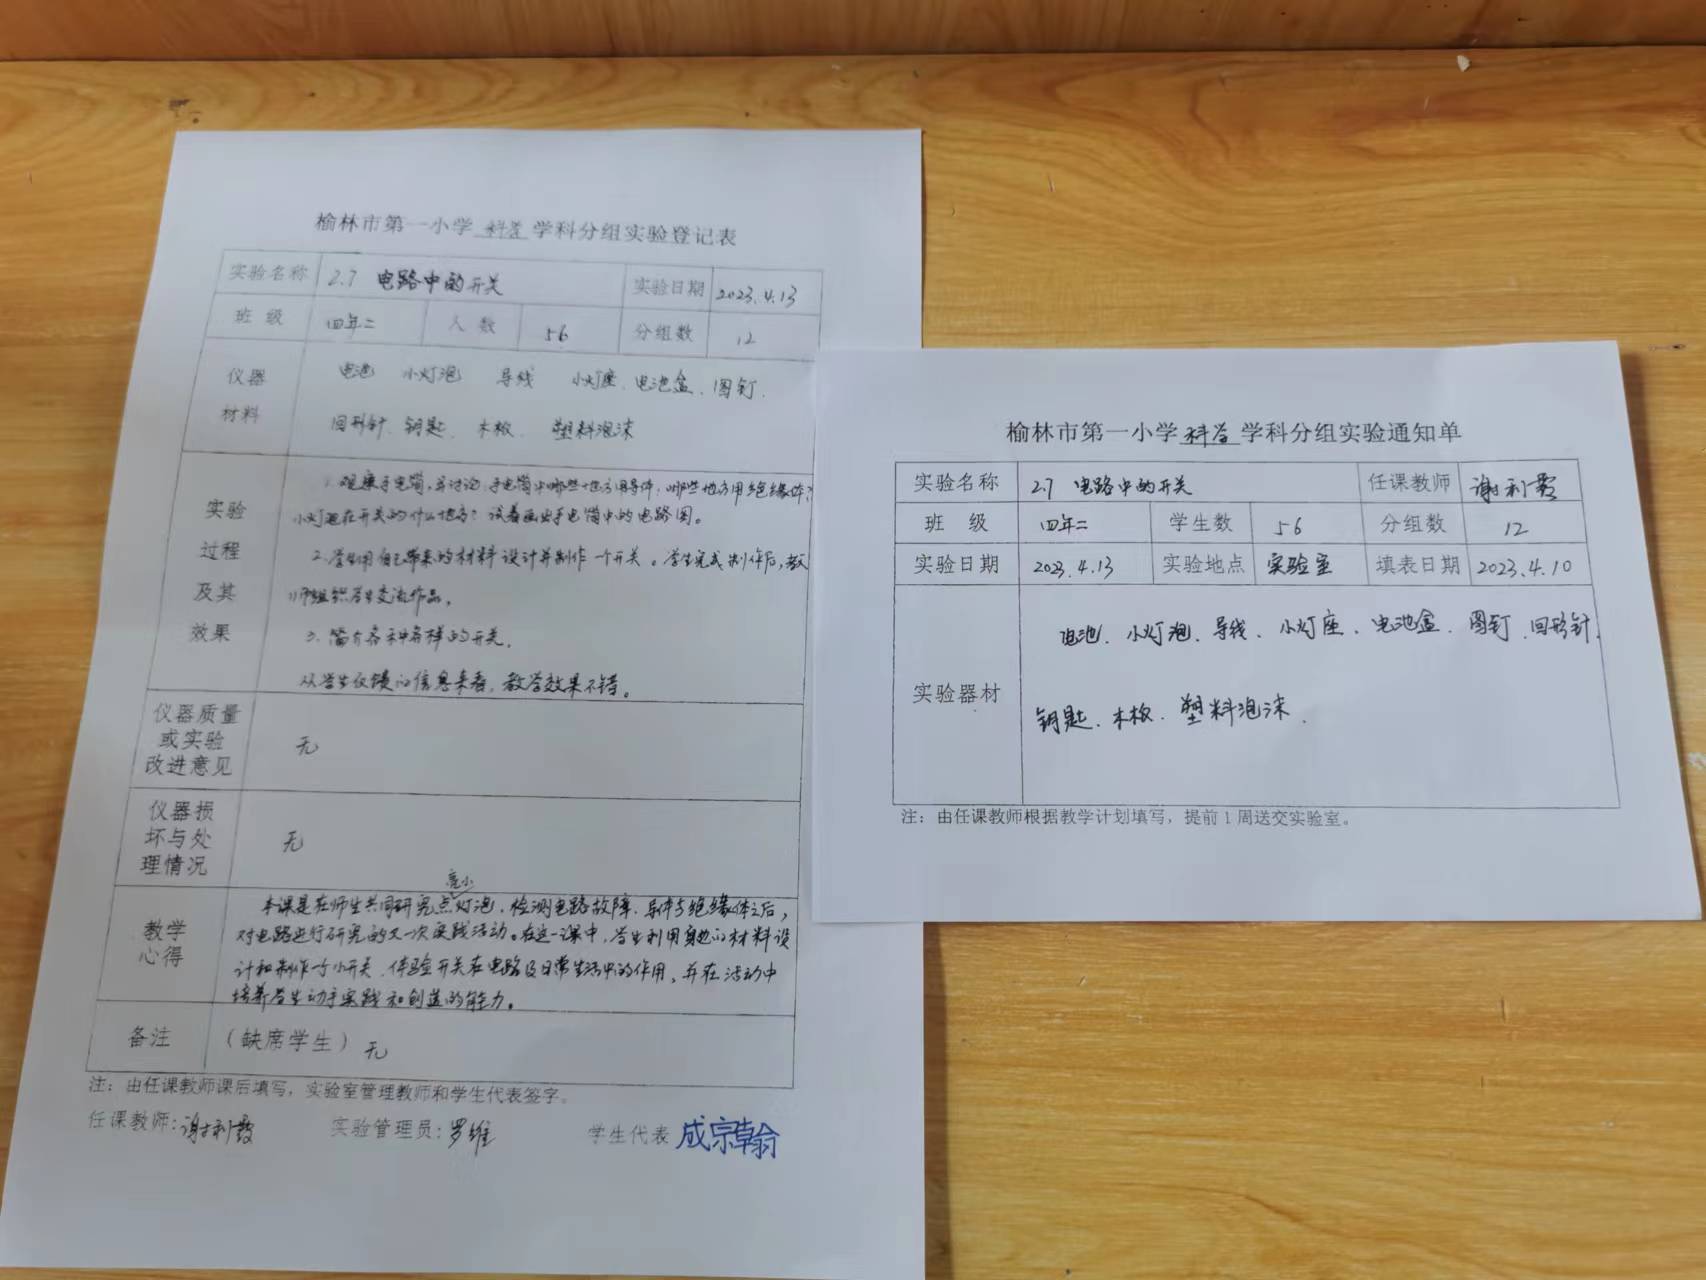 榆林市第一小学 科学 学科分组实验登记表
实验名称 2.7 电路中的开关 实验日期 2023.4.13
班 级 四年二 人 数 56 分组数 12
仪器
材料
电池 小灯泡 导线 小灯座、电池盒、图钉、
回形针、钥匙、木板、塑料泡沫
实验
过程
及其
效果
1.观察手电筒,并讨论:手电筒中哪些地方用导体;哪些地方用绝缘体?
小灯泡在开关的什么地方?试着画出手电筒中的电路图。
2.学生用自己带来的材料设计并制作一个开关。学生完成制作后,教
师组织学生交流作品。
3.简介各种各样的开关。
从学生反馈的信息来看,教学效果不错。
仪器质量
或实验
改进意见
无
仪器损
坏与处
理情况
无
教学
心得
亮小
本课是在师生共同研究点灯泡、检测电路故障、导体与绝缘体之后,
对电路进行研究的又一次实践活动。在这一课中,学生利用身边的材料设
计和制作一个小开关,体验开关在电路及日常生活中的作用,并在活动中
培养学生动手实践和创造的能力。
备注 (缺席学生) 无
注:由任课教师课后填写,实验室管理教师和学生代表签字。
任课教师:谢利霞 实验管理员:罗维 学生代表 成宗翰
榆林市第一小学 科学 学科分组实验通知单
实验名称 2.7 电路中的开关 任课教师 谢利霞
班 级 四年二 学生数 56 分组数 12
实验日期 2023.4.13 实验地点 实验室 填表日期 2023.4.10
实验器材
电池、小灯泡、导线、小灯座、电池盒、图钉、回形针、
钥匙、木板、塑料泡沫、
注:由任课教师根据教学计划填写,提前1周送交实验室。